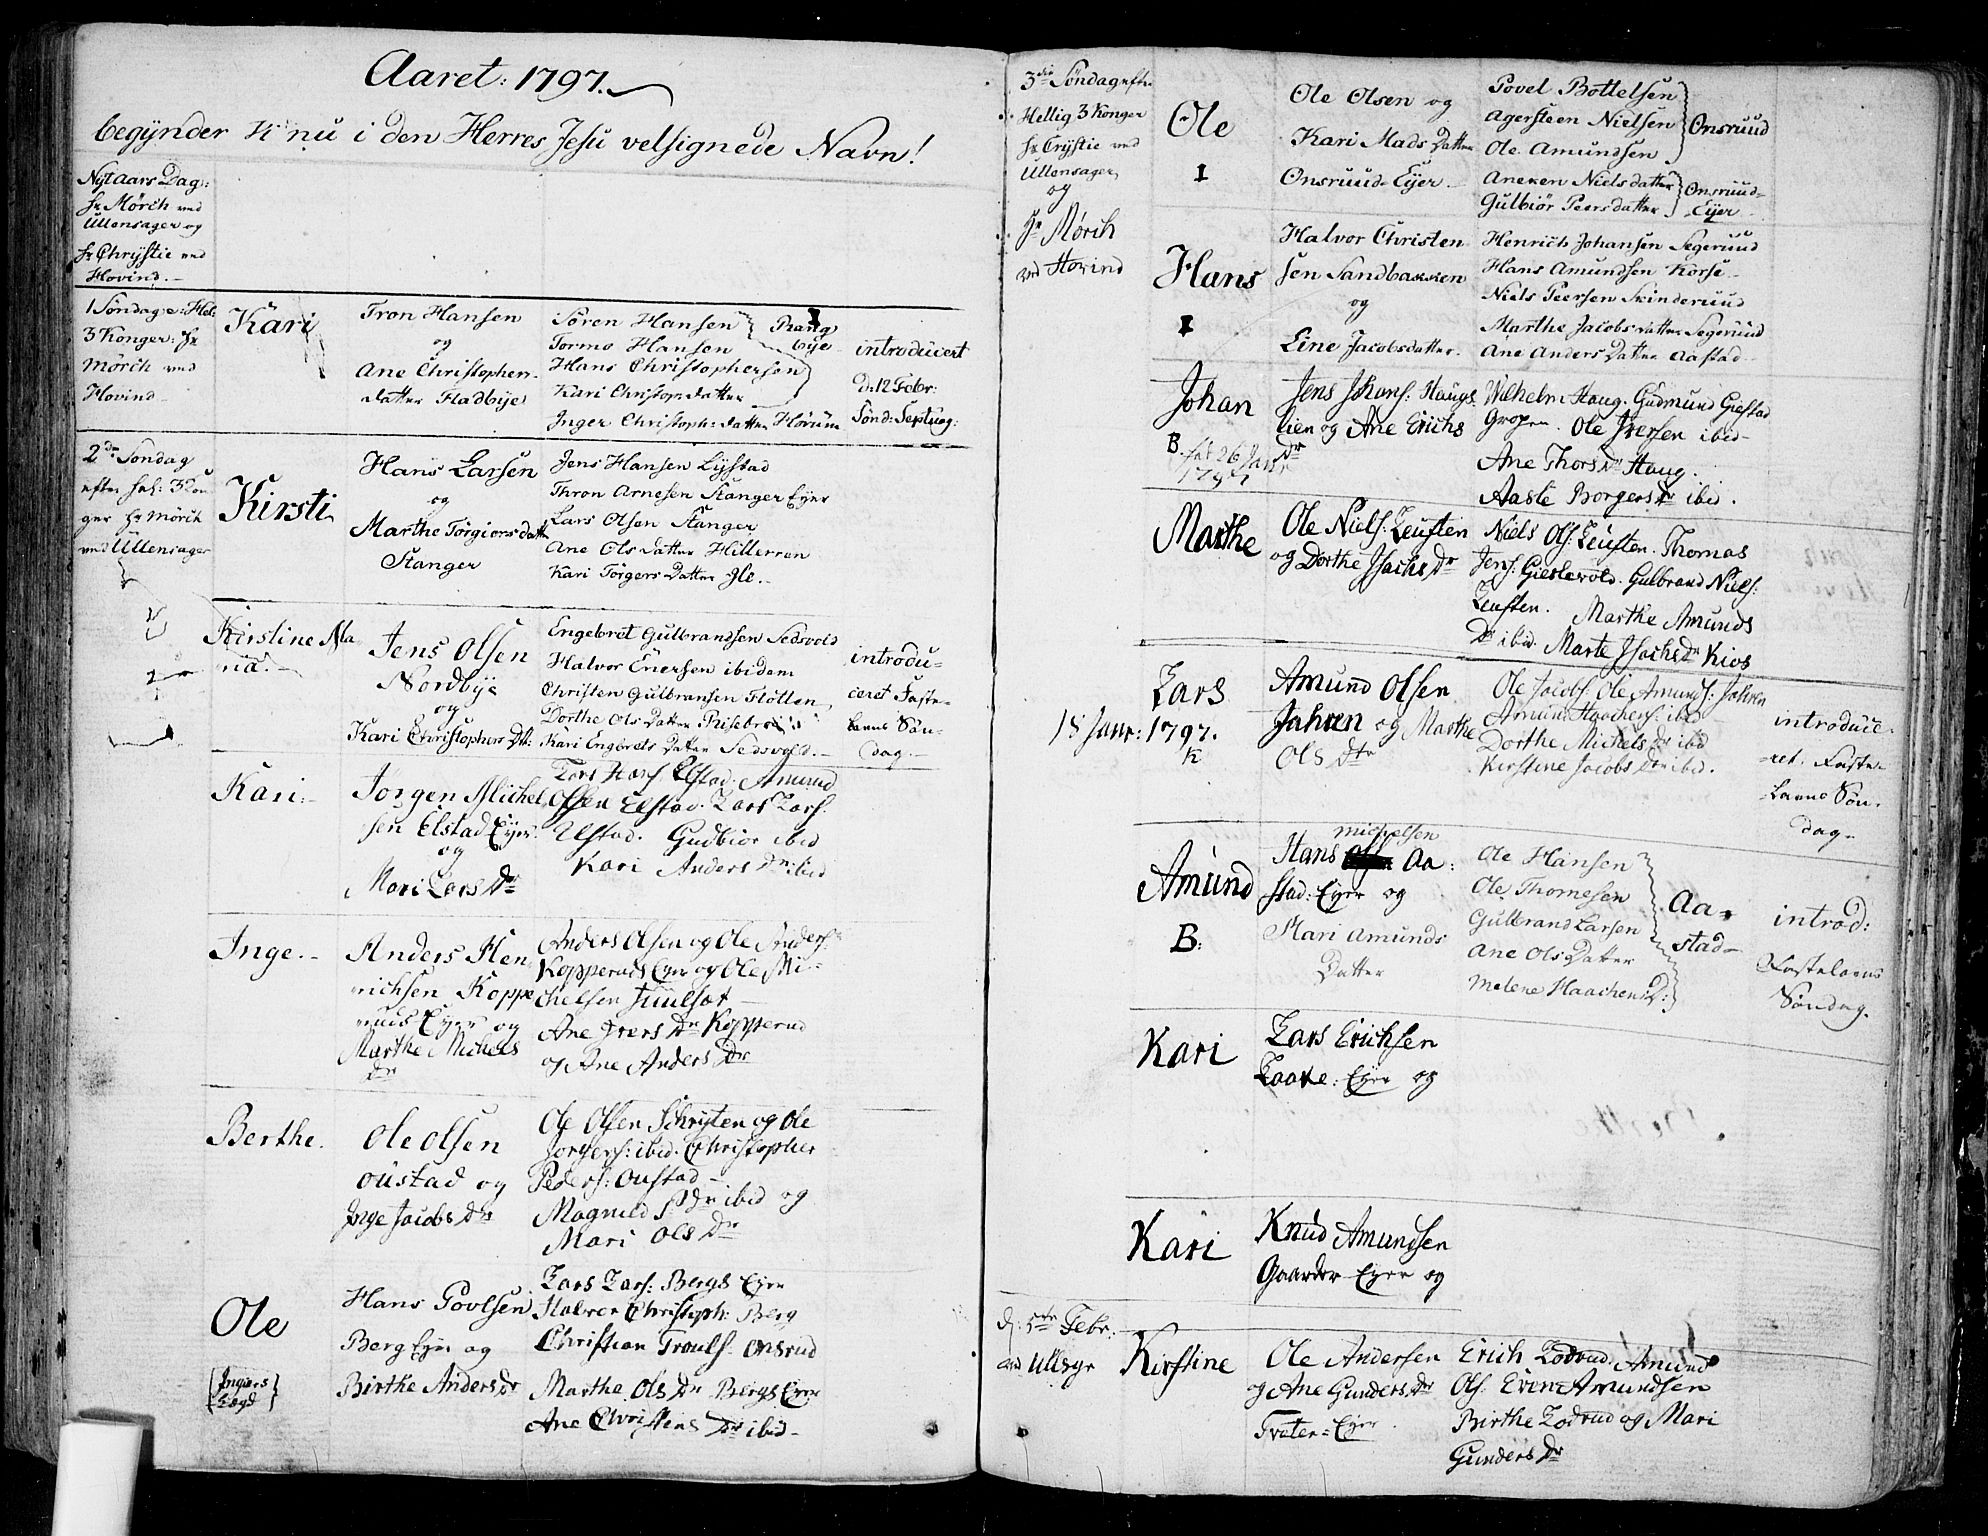 Aaret: 1797.
begynder nu i den Herres Jesu velsignede Navn!
Nyt aars Dag:
Hr Mörch ved
Ullensager og
Hr Chrystie ved
Hovind.
1 Söndag e: Hel:
3 Konger: Hr
Mörch ved
Hovind
Kari
Tron Hansen
og
Ane Christophers
datter Hadbye
Sören Hansen
Tormo Hansen
Hans Christophersen
Kari Christops datter
Inger Christoph: datter Hörüm
Rang
bye
introducert
d: 12 Febr:
Sönd: Septuag:
2den Söndag
efter hel: 3 Kon
ger Hr Mörch
ved Ullensager
Kirsti
Hans Larsen
og
Marthe Törgiers datter
Stanger
Jens Hansen Lystad
Thron Arnesen Stanger Eyer
Lars Olsen Stanger
Ane Ols datter Hilleren
Kari Törgers Datter Jle.
Kirstine Ma
ria.
Jens Olsen
Nordbye
og
Kari Christophers Dtr:
Engebret Gulbrandsen Sedsvold
Halvor Enersen ibidem
Christen Gulbransen Flötten
Dorthe Ols Datter Risebroe
Kari Engbrets Datter Sedsvold.
introdu-
ceret Faste-
lavns Sön-
dag.
Kari
Jörgen Michel
sen Elstad Eyer
og
Mari Lars Dr
Lars Hans Elstad. Amund
Olsen Elstad. Lars Lars:
Elstad. Gudbiör ibid
Kari Anders Dr: ibid
Inge.
Anders Hen
richsen Koppe
ruds Eyer og
Marthe Michels
dr
Anders Olsen og Ole Anders:
Kopperuds Eyer og Ole Mi-
chelsen Juulsæt
Ane Ivers Dr Kopperud
og Ane Anders Dr
Berthe.
Ole Olsen
Oustad og
Inge Jacobs Dr
Ole Olsen Schryten og Ole
Jörgens: ibid. Christopher
Peders: Oustad
Magnild Dr ibid og
Mari Ols Dr
Ole
Ingiers
Lægd
Hans Povlsen
Berg Eyer og
Birthe Anders Dr
Lars Lars: Bergs Eyer
Halvor Christoph: Berg
Christian Trouls. Onsrud
Marthe Ols Dr Bergs Eyer
Ane Christens Dr ibid
3die Söndag efter
Hellig 3 Konger
Hr Crystie ved
Ullensager
og
Hr Mörch
ved Hovind
Ole
1
Ole Olsen og
Kari Mads Datter
Onsruud-Eyer
Povel Bottelsen
Agersteen Nielsen
Ole Amundsen
Onsruud
Aneken Niels datter
Gulbiör Peers datter
Onsruud-
Eyer
Hans
1
Halvor Christen
sen Sandbakken
og
Line Jacobsdatter.
Henrich Johansen Segeruud
Hans Amundsen Korse
Niels Peersen Skinderuud
Marthe Jacobs datter Segeruud
Ane Anders Datter Aastad
Johan
B. fød 26 Janr
1797
Jens Johans: Haugs
lien og Ane Erichs
Dr
Wilhelm Haug. Gudmund Giestad
Gropen. Ole Iversen ibid
Ane Thors Dr Haug.
Aaste Borgers Dr ibid.
Marthe
Ole Niels: Leusten
og Dorthe Isachs Dr
Niels Ols: Leusten. Thomas
Jens: Gislevold. Gulbrand Niels:
Leusten. Marthe Amunds
Dr ibid. Marte Isachs Dr Kios
Lars
15 Janr: 1797.
K
Amund Olsen
Jahren og Marthe
Ols Dtr
Ole Jacobs: Ole Amunds: Jahren
Amund Haachens: ibid
Dorthe Michels Dr ibid
Kirstine Jacobs Dr ibid.
introduce-
ret. Faste-
lavns Sön-
dag
Amund
B:
Michelsen
Hans Aa:
stad: Eyer og
Mari Amunds
Datter
Ole Hansen
Ole Thomesen
Gulbrand Larsen
Ane Ols Datter
Melene Haachens D:
Aa-
stad
introd:
Fastelavns
Söndag.
Kari
Lars Erichsen
Laake: Eyer og
Kari
Knud Amundsen
Gaarder Eyer og
d: 5te Febr:
ved Ullsgr
Kirstine
Ole Andersen
og Ane Gunders Dr
Træter=Eyer.
Erich Lodrud. Amund
Ols. Even Amundsen
Birthe Lodrud og Mari
Gunders Dr